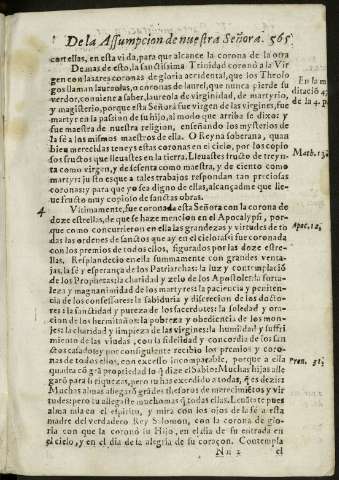 De la Assumpcion de nuestra Señora. 565
con ellas, en esta vida, para que alcance la corona de la otra
Demas de esto, la sanctissima Trinidad coronò a la Vir
gen con las tres coronas de gloria accidental, que los Theolo
gos llaman laureolas, o coronas de laurel, que nunca pierde su
verdor, conuiene a saber, laureola de virginidad, de martyrio,
y magisterio, porque esta Señora fue virgen de las virgines, fue
martyr en la passion de su hijo, al modo que arriba se dixo: y
fue maestra de nuestra religion, enseñando los mysterios de
la fè a los mismos maestros de ella. O Reyna soberana, quan
bien merecidas teneys estas coronas en el cielo, por los copio
sos fructos que lleuastes en la tierra. Lleuastes fructo de treyn
ta como virgen, y de sesenta como maestra, y de ciento como
martyr ju sto es que a tales trabajos respondan tan preciosas
coronas: y para que yo sea digno de ellas, alcançadme que lle-
ue fructo muy copioso de sanctas obras.
En la me
ditaciõ 4,
de la 4. p.
Math. 13.
4. Vltimamente, fue coronada esta Señora con la corona de
doze estrellas, de que se haze mencion en el Apocalypsi, por-
que como concurrieron en ella las grandezas y virtudes de to
das las ordenes de sanctos que ay en el cielo: assi fue coronada
con los premios de todos ellos, figurados por las doze estre-
llas. Resplandecio en ella summamente con grandes venta-
jas, la fè y esperança de los Patriarchas: la luz y contemplaciõ
de los Prophetas: la charidad y zelo de los Apostoles: la forta-
leza y magnanimidad de los martyres: la paciencia y peniten-
cia de los confessores: la sabiduria y discrecion de los docto-
res: la sanctidad y pureza de los sacerdotes: la soledad y ora-
cion de los hermitaños: la pobreza y obediencia de los mon-
jes: la charidad y limpieza de las virgines: la humildad y suffri
miento de las viudas, con la fidelidad y concordia de los san
ctos casados: y por consiguiente recibio los premios y coro-
nas de todos ellos, con excesso incomparable, porque a ella
quadra cõ grã propriedad lo q̃ dize el Sabio: Muchas hijas alle
garõ para si riquezas, pero tu has excedido a todas, q̃ es dezir:
Muchas almas allegarõ grãdes thesoros de merecimiẽtos y vir
tudes: pero tu allegaste muchomas q̃ todas ellas. Leuãtate pues
alma mia en el espiritu, y mira con los ojos de la fè a esta
madre del verdadero Rey Salomon, con la corona de glo-
ria con que la coronò su Hijo, en el dia de su entrada en
el cielo, y en el dia de la alegria de su coraçon. Contempla
Apoc. 12.
Prou. 31.
Nn 2 el